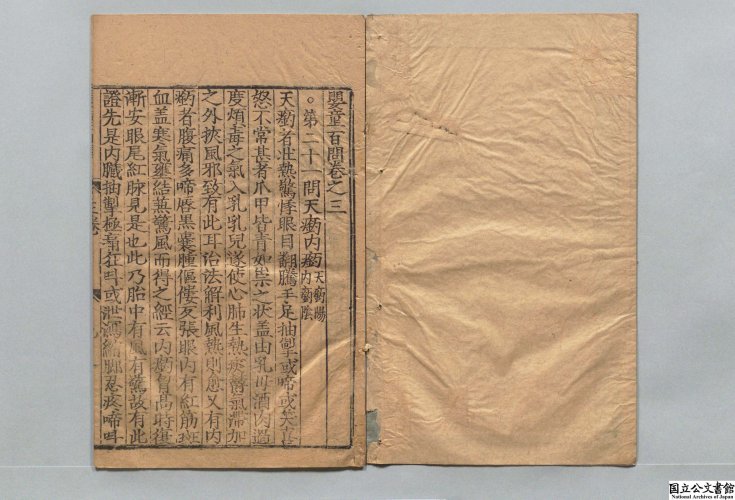 嬰童百問卷之三
○第二十一問天瘹内瘹 天瘹陽
内瘹陰
天瘹者壯熱驚悸眼目翻騰手足抽掣或啼或笑喜
怒不常甚者爪甲皆青如祟之状盖由乳母酒肉過
度煩毒之氣入乳乳兒遂使心肺生熱痰欝氣滞加
之外挾風邪致有此耳治法解利風熱則愈又有内
瘹者腹痛多啼唇黒囊腫傴僂反張眼内有紅筋斑
血盖寒氣壅結兼驚風而得之經云内瘹胷髙時復
漸安眼尾紅脉見是也此乃胎中有風有驚故有此
證先是内臓抽掣極痛狂呌或泄瀉縮脚忍疼啼呌
国立公文書館
National Archives of Japan